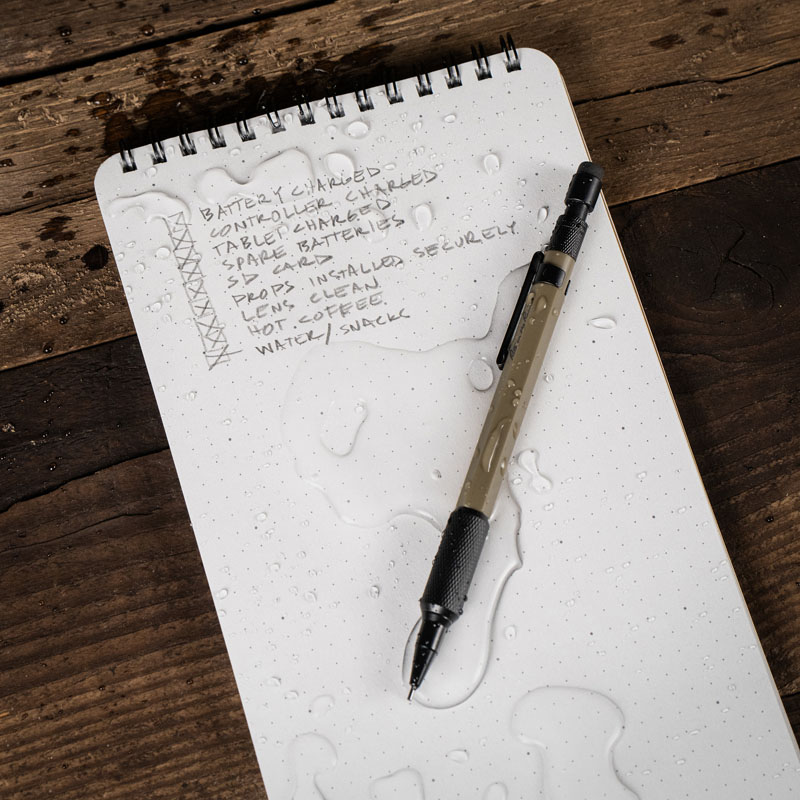 BATTERY CHARGED
CONTROLLER CHARGED
TABLET CHARGED
SPARE BATTERIES
SD CARD
PROPS INSTALLED SECURELY
LENS CLEAN
HOT COFFEE
WATER/SNACKS